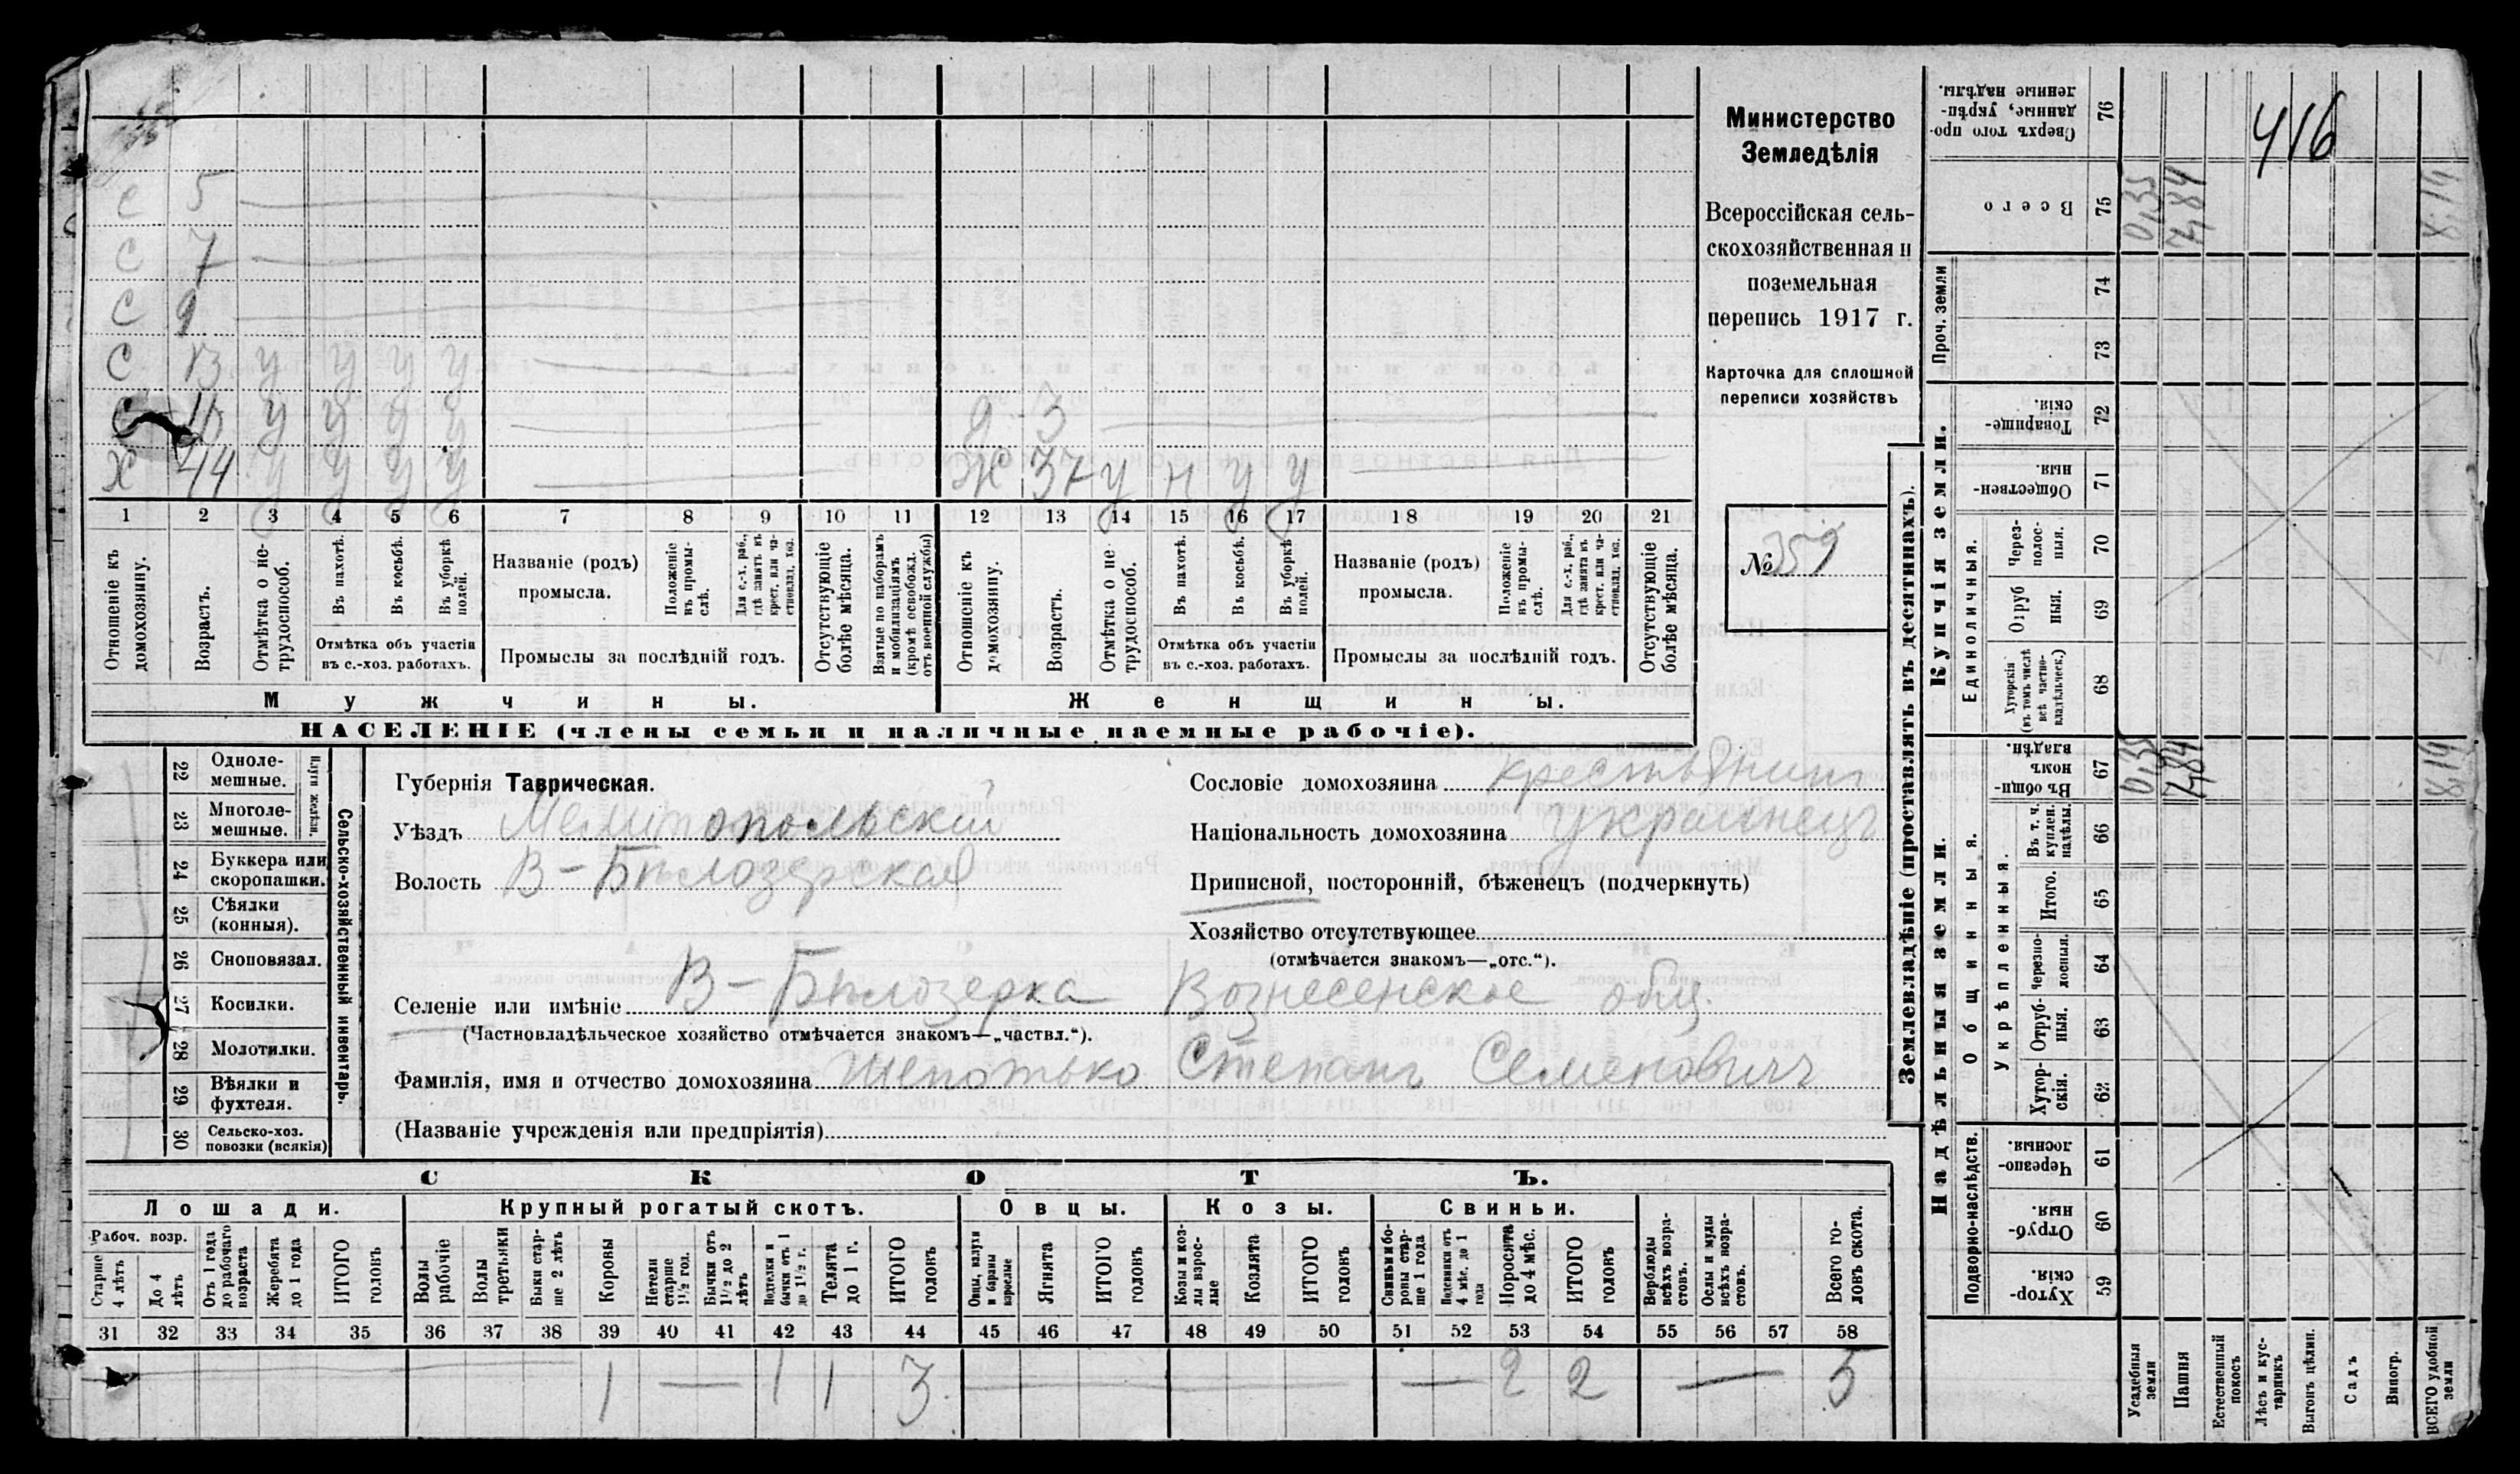 416
С 5
С 7
С 9
С 13 у у у у
С у у у у
д 3
Х 44 у у у у
Ж 37 у н у у
1 2 3 4 5 6 7 8 9 10 11 12 13 14 15 16 17 18 19 20 21
Отношеніе къ домохозяину.
Возрастъ.
Отмѣтка о не-
трудоспособ.
Въ пахотѣ.
Въ косьбѣ.
Въ уборкѣ полей.
Отмѣтка объ участіи
въ с.-хоз. работахъ.
Названіе (родъ)
промысла.
Положеніе въ промы-
слѣ.
Для с.-х. раб., гдѣ занятъ въ крест. или ча-
стновлад. хоз.
Промыслы за послѣдній годъ.
Отсутствующіе болѣе мѣсяца.
Взятые по наборамъ и мобилизаціямъ (кромѣ освобожд. отъ военной службы)
Отношеніе къ домохозяину.
Возрастъ.
Отмѣтка о не
трудоспособ.
Въ пахотѣ.
Въ косьбѣ.
Въ уборкѣ полей.
Отмѣтка объ участіи
въ с.-хоз. работахъ.
Названіе (родъ)
промысла.
Положеніе въ промы-
слѣ.
Для с.-х. раб., гдѣ занята въ крест. или ча-
стновлад. хоз.
Промыслы за послѣдній годъ.
Отсутствующіе болѣе мѣсяца.
Мужчины.
Женщины.
НАСЕЛЕНІЕ (члены семьи и наличные наемные рабочіе).
Министерство
Земледѣлія
Всероссійская сель-
скохозяйственная и
поземельная
перепись 1917 г.
Карточка для сплошной
переписи хозяйствъ
№ 359
22 Одноле-
мешные.
23 Многоле-
мешные.
Плуги желѣзн.
24 Буккера или
скоропашки.
25 Сѣялки
(конныя).
26 Сноповязал.
27 Косилки.
28 Молотилки.
29 Вѣялки и
фухтеля.
30 Сельско-хоз.
повозки (всякія)
Сельско-хозяйственный инвентарь.
Губернія Таврическая.
Уѣздъ Мелитопольскій
Волость В-Бѣлозерская
Сословіе домохозяина крестьянинъ
Національность домохозяина украинецъ
Приписной, посторонній, бѣженецъ (подчеркнуть)
Хозяйство отсутствующее
(отмѣчается знакомъ—„отс.“).
Селеніе или имѣніе В-Бѣлозерка Вознесенское общ.
(Частновладѣльческое хозяйство отмѣчается знакомъ—„частвл.“).
Фамилія, имя и отчество домохозяина Шепотько Степанъ Семеновичъ
(Названіе учрежденія или предпріятія)
СКОТЪ.
Лошади.
Крупный рогатый скотъ.
Овцы.
Козы.
Свиньи.
Рабоч. возр.
Старше 4 лѣтъ
До 4 лѣтъ
Отъ 1 года до рабочаго возраста
Жеребята до 1 года
ИТОГО головъ
Волы рабочіе
Волы третьяки
Быки стар-
ше 2 лѣтъ
Коровы
Нетели старше 1½ год.
Бычки отъ 1½ до 2 лѣтъ
Подтелки и бычки отъ 1 до 1½ г.
Телята до 1 г.
ИТОГО головъ
Овцы, валухи и бараны взрослые
Ягнята
ИТОГО головъ
Козы и коз-
лы взрос-
лые
Козлята
ИТОГО головъ
Свиньи и бо-
ровы стар-
ше 1 года
Подсвинки отъ 4 мѣс. до 1 года
Поросята до 4 мѣс.
ИТОГО головъ
Верблюды всѣхъ возра-
стовъ.
Ослы и мулы всѣхъ возра-
стовъ.
Всего го-
ловъ скота.
31 32 33 34 35 36 37 38 39 40 41 42 43 44 45 46 47 48 49 50 51 52 53 54 55 56 57 58
1 — 1 1 3 — — 2 2 — 5
Землевладѣніе (проставлять въ десятинахъ).
Купчія земли.
Надѣльныя земли.
Проч. земли
Единоличныя.
Общинныя.
Укрѣпленныя.
Подворно-наслѣдств.
Сверхъ того про-
данные, укрѣп-
ленные надѣлы. 76
Всего 75 0,35 7,84 8,19
74
73
Товарище-
скія. 72
Обществен-
ныя. 71
Через-
полос-
ныя. 70
Отруб
ныя. 69
Хуторскія (въ томъ числѣ всѣ частно-
владѣльческ.) 68
Въ общи-
номъ
владѣн. 67 0,35 7,84 8,19
Въ т. ч. куплен. надѣлы. 66
Итого. 65
Черезпо-
лосныя. 64
Отруб-
ныя. 63
Хутор-
скія. 62
Черезпо-
лосныя. 61
Отруб-
ныя. 60
Хутор-
скія. 59
Усадебныя земли
Пашня
Естественный покосъ
Лѣсъ и кус-
тарникъ
Выгонъ цѣлин.
Садъ
Виногр.
ВСЕГО удобной земли